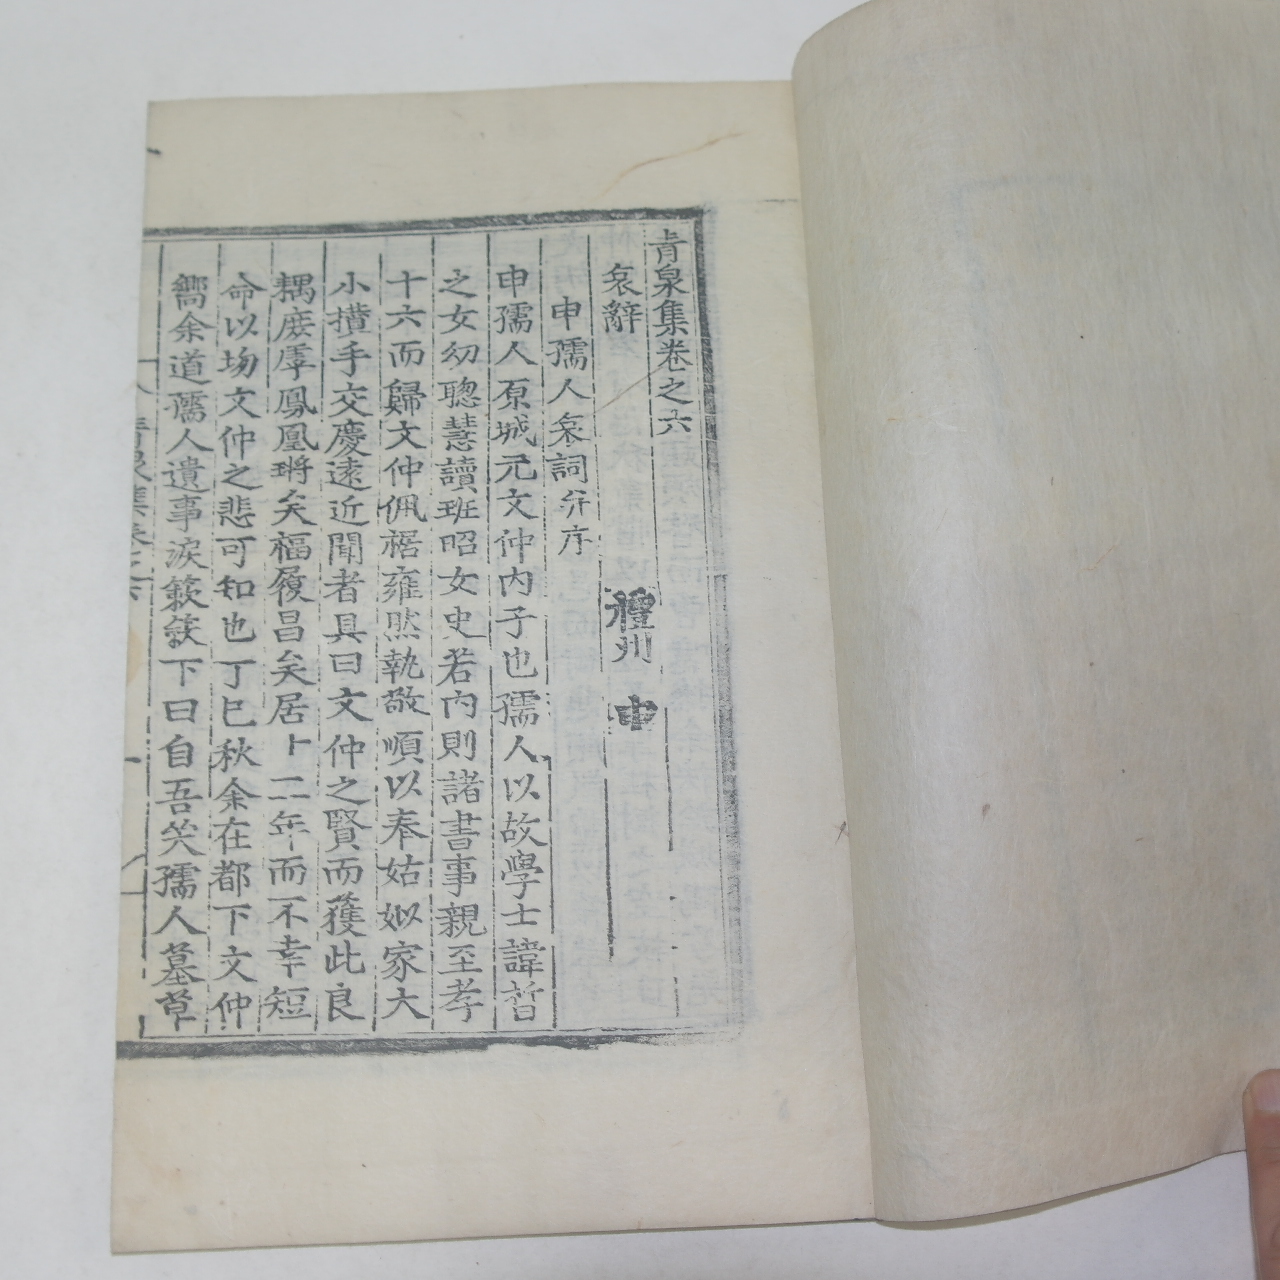 青泉集卷之六
哀辭
禮州 申
申孺人哀詞并序
申孺人原城元文仲內子也孺人以故學士諱晢
之女幼聰慧讀班昭女史若內則諸書事親至孝
十六而歸文仲佩椐雍然執敬順以奉姑姒家大
小攢手交慶遠近聞者具曰文仲之賢而獲此良
耦庶㡳鳳凰鏘矣福履昌矣居卜二年而不幸短
命以塲文仲之悲可知也丁巳秋余在都下文仲
嚮余道孺人遺事淚簌簌下曰自吾哭孺人墓草
青泉集卷之六